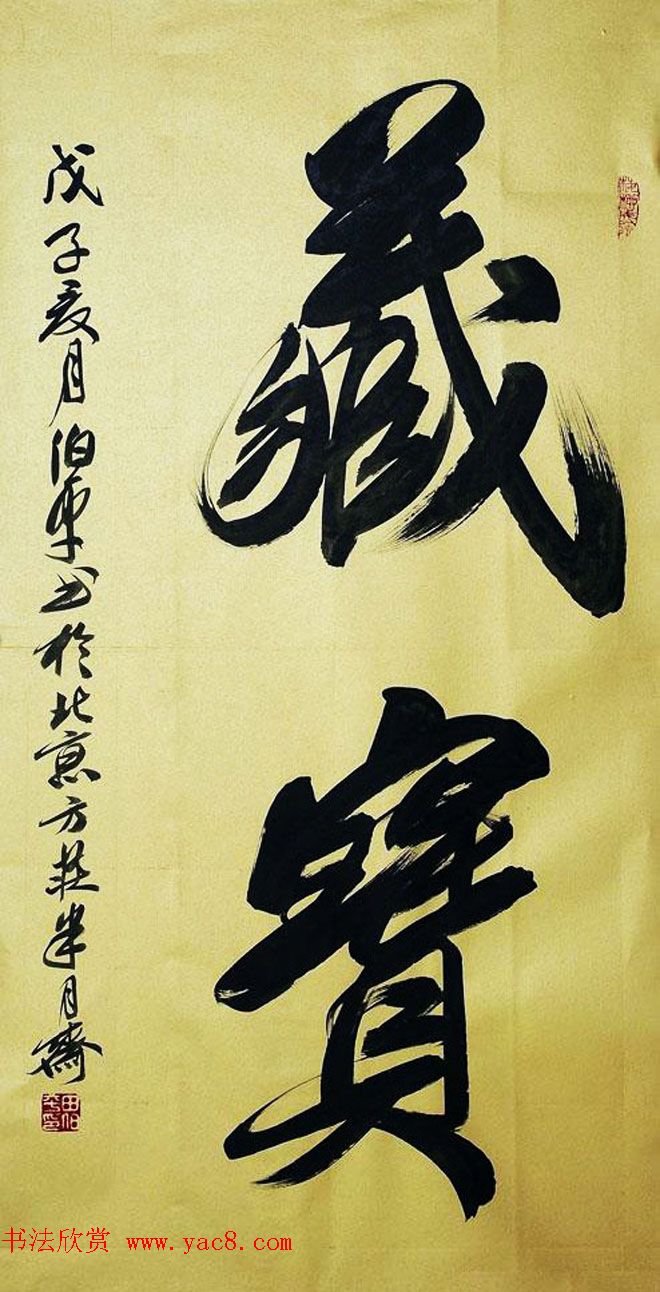 藏寶
戊子夏月伯平书於北京方莊半月齋
田伯平印
书法欣赏 www.yac8.com